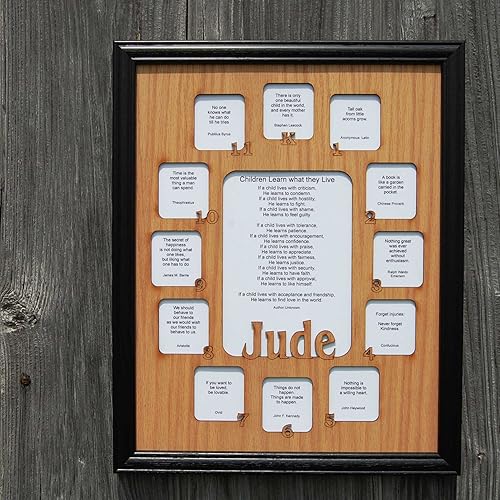 There is only
one beautiful
child in the world,
and every mother
has it.
Stephen Leacock
K
Tall oak
from little
acorns grow.
Anonymous  Latin
1
A book is
like a garden
carried in the
pocket.
Chinese Proverb
2
Nothing great
was ever
achieved
without
enthusiasm.
Ralph Waldo
Emerson
3
Forget injuries:
Never forget
Kindness
Confucious
4
Nothing is
impossible to
a willing heart.
John Heywood
5
Things do not
happen.
Things are made
to happen.
John F. Kennedy
6
If you want to
be loved,
be lovable.
Ovid
7
We should
behave to
our friends
as we would
wish our friends
to behave to us.
Aristotle
8
The secret of
happiness
is not doing what
one likes,
but liking what
one has to do.
James M. Barrie
9
Time is the
most valuable
thing a man
can spend.
Theophrastus
10
No one
knows what
he can do
till he tries
Publius Syrus
11
Children Learn what they Live
If a child lives with criticism,
He learns to condemn.
If a child lives with hostility,
He learns to fight.
If a child lives with shame,
He learns to feel guilty
If a child lives with tolerance,
He learns patience.
If a child lives with encouragement,
He learns confidence.
If a child lives with praise,
He learns to appreciate.
If a child lives with fairness,
He learns justice.
If a child lives with security,
He learns to have faith,
If a child lives with approval,
He learns to like himself.
If a child lives with acceptance and friendship,
He learns to find love in the world.
Author Unknown
Jude